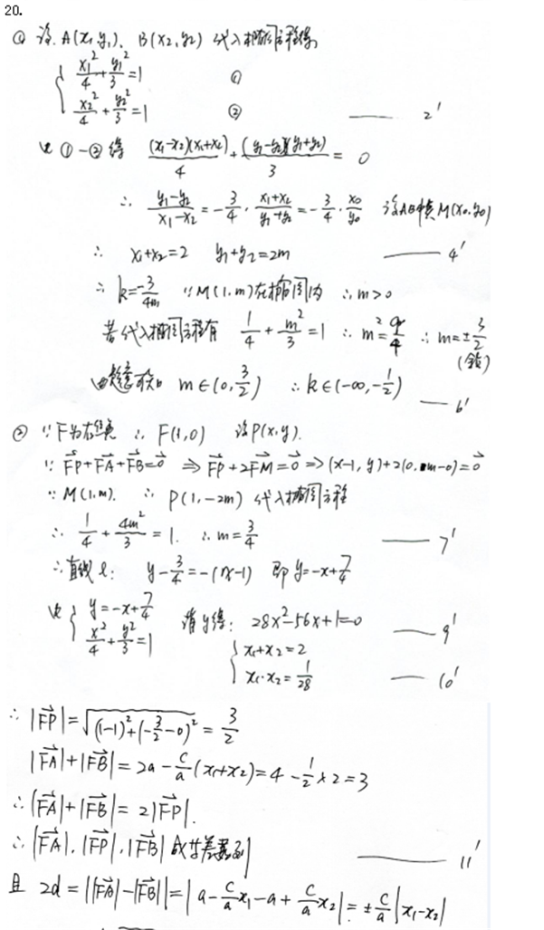 20.
① 设 A(x₁,y₁), B(x₂,y₂) 代入椭圆方程得
{ x₁²/4 + y₁²/3 = 1 ①
x₂²/4 + y₂²/3 = 1 ② —— 2'
由 ①-② 得 (x₁-x₂)(x₁+x₂)/4 + (y₁-y₂)(y₁+y₂)/3 = 0
∴ (y₁-y₂)/(x₁-x₂) = -3/4 · (x₁+x₂)/(y₁+y₂) = -3/4 · x₀/y₀ 设AB中点M(x₀,y₀)
∴ x₁+x₂=2 y₁+y₂=2m —— 4'
∴ k=-3/4m ∵ M(1,m)在椭圆内 ∴ m>0
若代入椭圆方程有 1/4 + m²/3 = 1 ∴ m²=9/4 ∴ m=±3/2
(舍)
由题意可知 m∈(0,3/2) ∴ k∈(-∞,-1/2) —— 6'
② ∵ F为右焦点 ∴ F(1,0) 设P(x,y).
∵ FP+FA+FB=0 ⇒ FP+2FM=0 ⇒ (x-1,y)+2(0,m-0)=0
∵ M(1,m). ∴ P(1,-2m) 代入椭圆方程
∴ 1/4 + 4m²/3 = 1. ∴ m=3/4 —— 7'
∴ 直线l: y-3/4=-(x-1) 即 y=-x+7/4
由 { y=-x+7/4
x²/4 + y²/3 = 1 消y得: 28x²-56x+1=0 —— 9'
{ x₁+x₂=2
x₁·x₂=1/28 —— 10'
∴ |FP|=√((1-1)²+(-3/2-0)²) = 3/2
|FA|+|FB|=2a-c/a(x₁+x₂)=4-1/2×2=3
∴ |FA|+|FB|=2|FP|.
∴ |FA|,|FP|,|FB| 成等差数列 —— 11'
且 2d=||FA|-|FB||=|a-c/a x₁-a+c/a x₂|=±c/a|x₁-x₂|